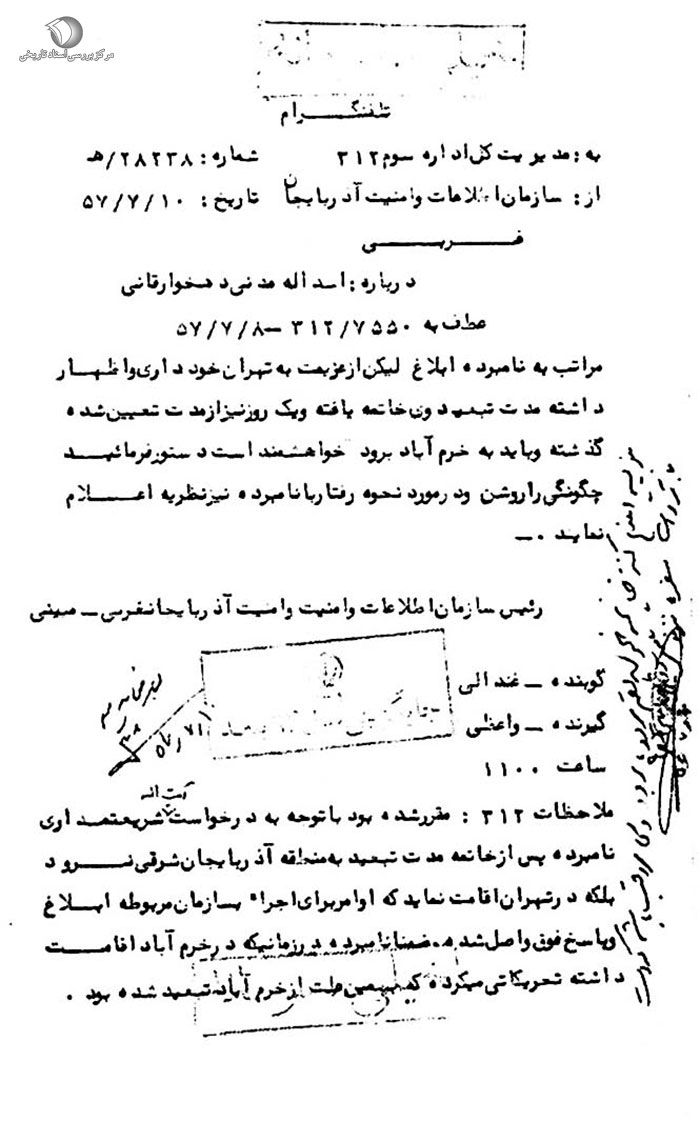 مرکز بررسی اسناد تاریخی
تلفنگرام
به: مدیریت کل اداره سوم ۳۱۲ شماره: ۲۸۲۳۸/هـ
از: سازمان اطلاعات وامنیت آذربایجان تاریخ: ۵۷/۷/۱۰
غربی
درباره: اسداله مدنی دهخوارقانی
عطف به ۳۱۲/۷۵۵۰ – ۵۷/۷/۸
مراتب به نامبرده ابلاغ لیکن از عزیمت به تهران خود داری واظهار
داشته مدت تبعیدون خاتمه یافته ویک روزنیز از مدت تعیین شده
گذشته وباید به خرم آباد برود خواهشمند است دستور فرمائید
چگونگی را روشن ودرمورد نحوه رفتار بانامبرده نیزنظریه اعلام
نمایند .ـ
رئیس سازمان اطلاعات وامنیت وامنیت آذربایجانغربی ـ مبینی
گوینده ـ غندالی
گیرنده ـ واعظی
ساعت ۱۱۰۰
آیت اله
ملاحظات ۳۱۲ : مقررشده بود باتوجه به درخواست شریعتمداری
نامبرده پس از خاتمه مدت تبعید به منطقه آذربایجان شرقی نرود
بلکه درتهران اقامت نماید که اوامربرای اجراء بسازمان مربوطه ابلاغ
وپاسخ فوق واصل شده. ضمنا نامبرده درزمانیکه درخرم آباد اقامت
داشته تحریکاتی میکرده که بهمین علت از خرم آباد تبعید شده بود .